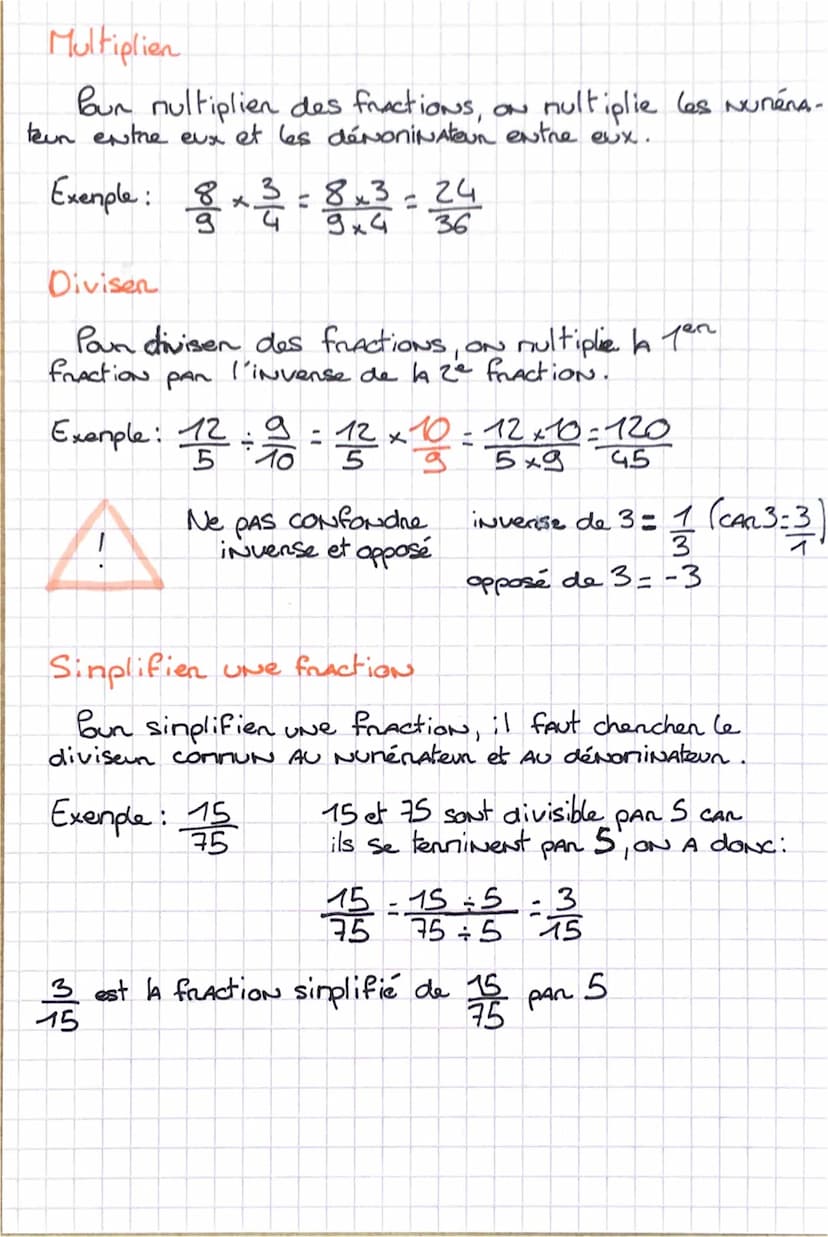 Multiplier
Pour multiplier des fractions, on multiplie les numéra-
teur entre eux et les dénominateur entre eux.
Exemple : 8/9 × 3/4 = 8×3/9×4 = 24/36
Diviser
Pour diviser des fractions, on multiplie la 1er
fraction par l'inverse de la 2e fraction.
Exemple : 12/5 ÷ 9/10 = 12/5 × 10/9 = 12×10/5×9 = 120/45
! Ne pas confondre inverse de 3 = 1/3 (car 3 = 3/1)
inverse et opposé
opposé de 3 = -3
Simplifier une fraction
Pour simplifier une fraction, il faut chercher le
diviseur commun au numérateur et au dénominateur.
Exemple : 15/75 15 et 75 sont divisible par 5 car
ils se terminent par 5, on a donc :
15/75 = 15÷5/75÷5 = 3/15
3/15 est la fraction simplifié de 15/75 par 5